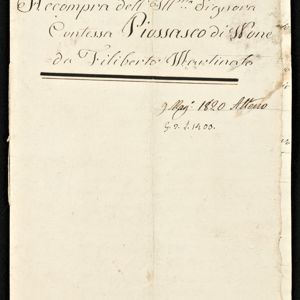 Accompra dell'Ill.ma Signora
Contessa Piossasco di None
da Filiberto Martinato
9 Mag.o 1820
L. 1400.